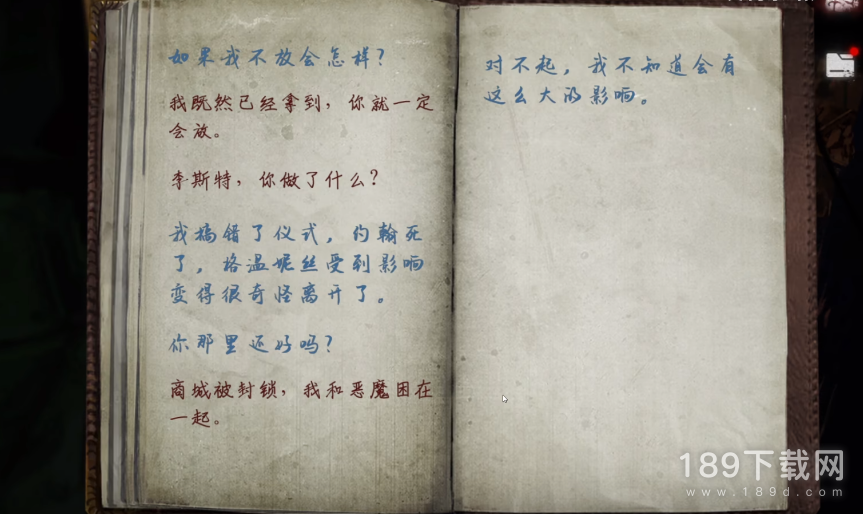 如果我不放会怎样？
我既然已经拿到，你就一定
会放。
李斯特，你做了什么？
我搞错了仪式，约翰死
了，格温妮丝受到影响
变得很奇怪离开了。
你那里还好吗？
商城被封锁，我和恶魔困在
一起。
对不起，我不知道会有
这么大的影响。
189下载网
www.189d.com